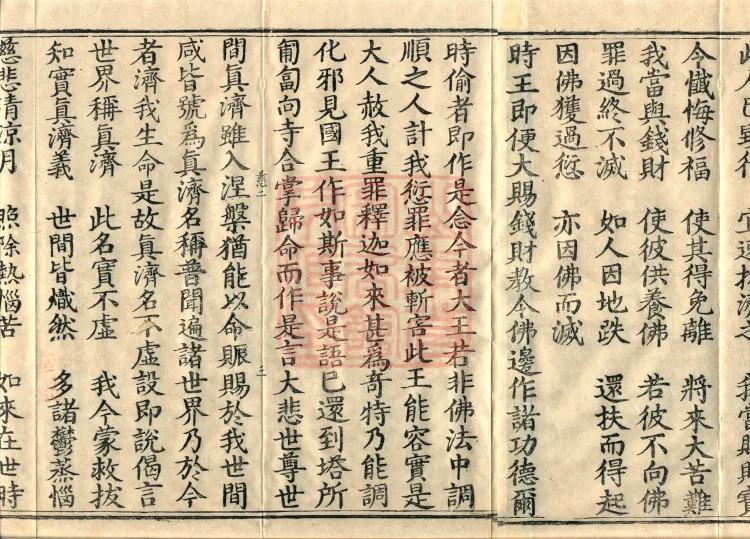 今懺悔修福　使其得免離　將來大苦難
我當與錢財　使彼供養佛　若彼不向佛
罪過終不滅　如人因地跌　還扶而得起
因佛獲過愆　亦因佛而滅
時王即便大賜錢財教令佛邊作諸功德爾
時偷者即作是念今者大王若非佛法中調
順之人計我愆罪應被斬害此王能容實是
大人赦我重罪釋迦如來甚為奇特乃能調
化邪見國王作如斯事說是語已還到塔所
匍匐向寺合掌歸命而作是言大悲世尊世
三
間真濟雖入涅槃猶能以命賑賜於我世間
咸皆號為真濟名稱普聞遍諸世界乃於今
者濟我生命是故真濟名不虛設即說偈言
世界稱真濟　此名實不虛　我今蒙救拔
知實真濟義　世間皆熾然　多諸鬱蒸惱
慈悲清涼月　照除熱惱苦　如來在世時